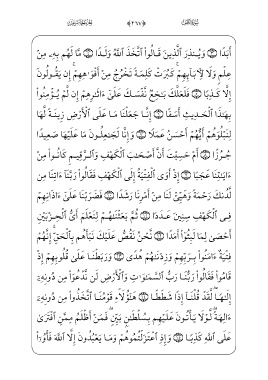 أَبَدًا ۝ وَيُنذِرَ ٱلَّذِينَ قَالُوا۟ ٱتَّخَذَ ٱللَّهُ وَلَدًا ۝ مَّا لَهُم بِهِۦ مِنْ
عِلْمٍ وَلَا لِـَٔابَآئِهِمْ ۚ كَبُرَتْ كَلِمَةً تَخْرُجُ مِنْ أَفْوَٰهِهِمْ ۚ إِن يَقُولُونَ
إِلَّا كَذِبًا ۝ فَلَعَلَّكَ بَـٰخِعٌ نَّفْسَكَ عَلَىٰٓ ءَاثَـٰرِهِمْ إِن لَّمْ يُؤْمِنُوا۟
بِهَـٰذَا ٱلْحَدِيثِ أَسَفًا ۝ إِنَّا جَعَلْنَا مَا عَلَى ٱلْأَرْضِ زِينَةً لَّهَا
لِنَبْلُوَهُمْ أَيُّهُمْ أَحْسَنُ عَمَلًا ۝ وَإِنَّا لَجَـٰعِلُونَ مَا عَلَيْهَا صَعِيدًا
جُرُزًا ۝ أَمْ حَسِبْتَ أَنَّ أَصْحَـٰبَ ٱلْكَهْفِ وَٱلرَّقِيمِ كَانُوا۟ مِنْ
ءَايَـٰتِنَا عَجَبًا ۝ إِذْ أَوَى ٱلْفِتْيَةُ إِلَى ٱلْكَهْفِ فَقَالُوا۟ رَبَّنَآ ءَاتِنَا مِن
لَّدُنكَ رَحْمَةً وَهَيِّئْ لَنَا مِنْ أَمْرِنَا رَشَدًا ۝ فَضَرَبْنَا عَلَىٰٓ ءَاذَانِهِمْ
فِى ٱلْكَهْفِ سِنِينَ عَدَدًا ۝ ثُمَّ بَعَثْنَـٰهُمْ لِنَعْلَمَ أَىُّ ٱلْحِزْبَيْنِ
أَحْصَىٰ لِمَا لَبِثُوٓا۟ أَمَدًا ۝ نَّحْنُ نَقُصُّ عَلَيْكَ نَبَأَهُم بِٱلْحَقِّ ۚ إِنَّهُمْ
فِتْيَةٌ ءَامَنُوا۟ بِرَبِّهِمْ وَزِدْنَـٰهُمْ هُدًى ۝ وَرَبَطْنَا عَلَىٰ قُلُوبِهِمْ إِذْ
قَامُوا۟ فَقَالُوا۟ رَبُّنَا رَبُّ ٱلسَّمَـٰوَٰتِ وَٱلْأَرْضِ لَن نَّدْعُوَا۟ مِن دُونِهِۦٓ
إِلَـٰهًا ۖ لَّقَدْ قُلْنَآ إِذًا شَطَطًا ۝ هَـٰٓؤُلَآءِ قَوْمُنَا ٱتَّخَذُوا۟ مِن دُونِهِۦٓ
ءَالِهَةً ۖ لَّوْلَا يَأْتُونَ عَلَيْهِم بِسُلْطَـٰنٍۭ بَيِّنٍ ۖ فَمَنْ أَظْلَمُ مِمَّنِ ٱفْتَرَىٰ
عَلَى ٱللَّهِ كَذِبًا ۝ وَإِذِ ٱعْتَزَلْتُمُوهُمْ وَمَا يَعْبُدُونَ إِلَّا ٱللَّهَ فَأْوُۥٓا۟